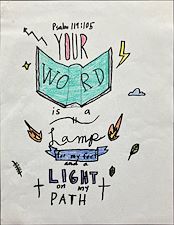 Psalm 119:105
YOUR
WORD
is a
Lamp
for my feet
and a
LIGHT
on my
PATH